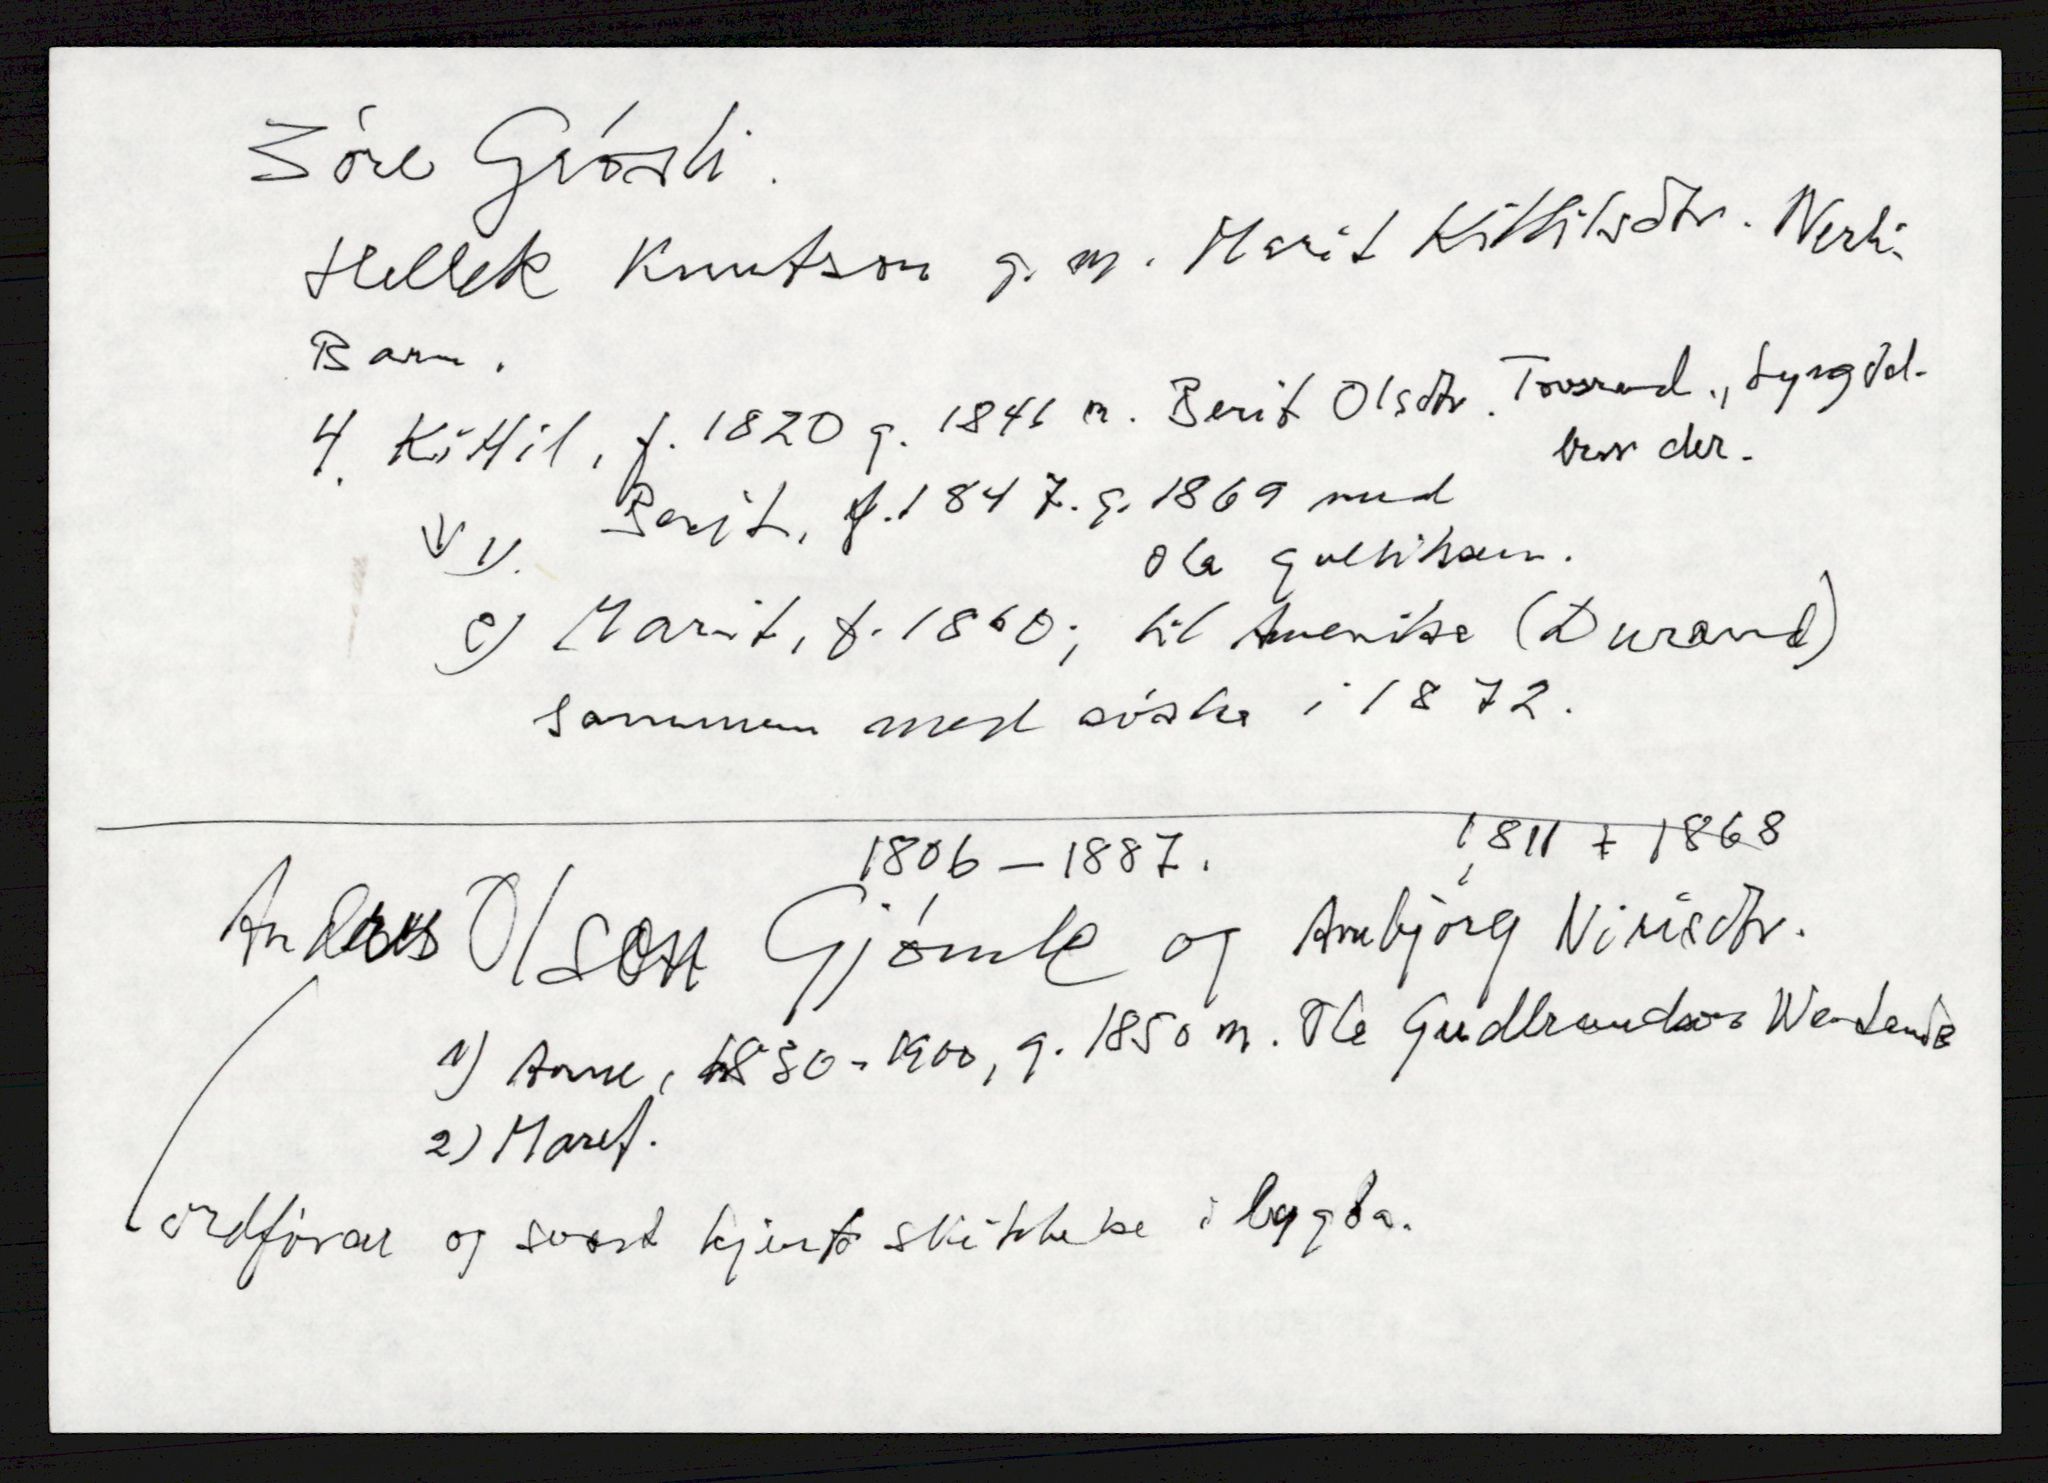 Sóre Grósli.
Hellek Knutson g. m. Marit Kittilsdtr. Nerli.
Barn.
4. Kittil, f. 1820 g. 1846 m. Berit Olsdtr. Tovsrud., Lyngdal.
bur der.
1). Berit, f. 1847. g. 1869 med
Ola gulliksen.
c) Marit, f. 1860; til Amerika (Durand)
sammen med sóska i 1872.
1806 – 1887. 1811 + 1868
Anders Olson Gjómle og Annbjórg Nirisdtr.
1) Anne, 1830-1900, g. 1850 m. Ole Gudbrandson
2) Maret.
órdfórar og svært kjent i bygda.